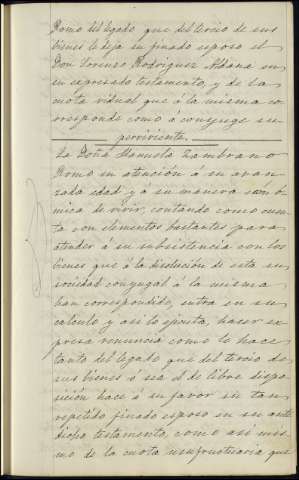 Romo del legado que del tercio de sus
bienes le deja su finado esposo el
Don Lorenzo Rodriguez Aldana en
su expresado testamento, y de la
cuota vidual que á la misma co-
rresponde como á conyuge su-
perviviente.
La Doña Manuela Zambrano
Romo en atención á su avan-
zada edad y á su manera econ-
mica de vivir, contando como cuen-
ta con elementos bastantes para
atender á su subsistencia con los
bienes que á la disolución de esta su
sociedad conyugal á la misma
han correspondido, entra en su
calculo y así lo ejecuta, hacer ex-
presa renuncia como lo hace
tanto del legado que del tercio de
sus bienes ó sea el de libre dispo-
sición hace á su favor su tan
repetido finado esposo en su ante
dicho testamento, como así mis-
mo de la cuota usufructuaria que